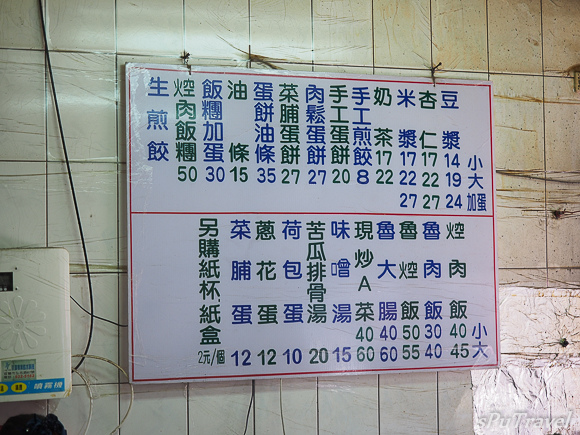 豆漿 14 19 24 小 大 加蛋
杏仁 17 22 27
米漿 17 22 27
奶茶 17 22
手工煎餃 8
手工蛋餅 20
肉鬆蛋餅 27
菜脯蛋餅 27
蛋餅油條 35
油條 15
飯糰加蛋 30
焢肉飯糰 50
生煎餃
焢肉飯 40 45 小 大
魯肉飯 30 40
魯焢飯 50 55
魯大腸 40 60
現炒A菜 40 60
味噌湯 15
苦瓜排骨湯 20
荷包蛋 10
蔥花蛋 12
菜脯蛋 12
另購紙杯.紙盒 2元/個
噴霧機
sPuTravel